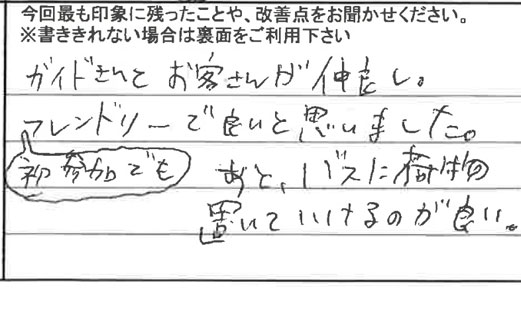 今回最も印象に残ったことや、改善点をお聞かせください。
※書ききれない場合は裏面をご利用下さい
ガイドさんとお客さんが仲良し。
フレンドリーで良いと思いました。
初参加でも
あと、バスに荷物
置いていけるのが良い。